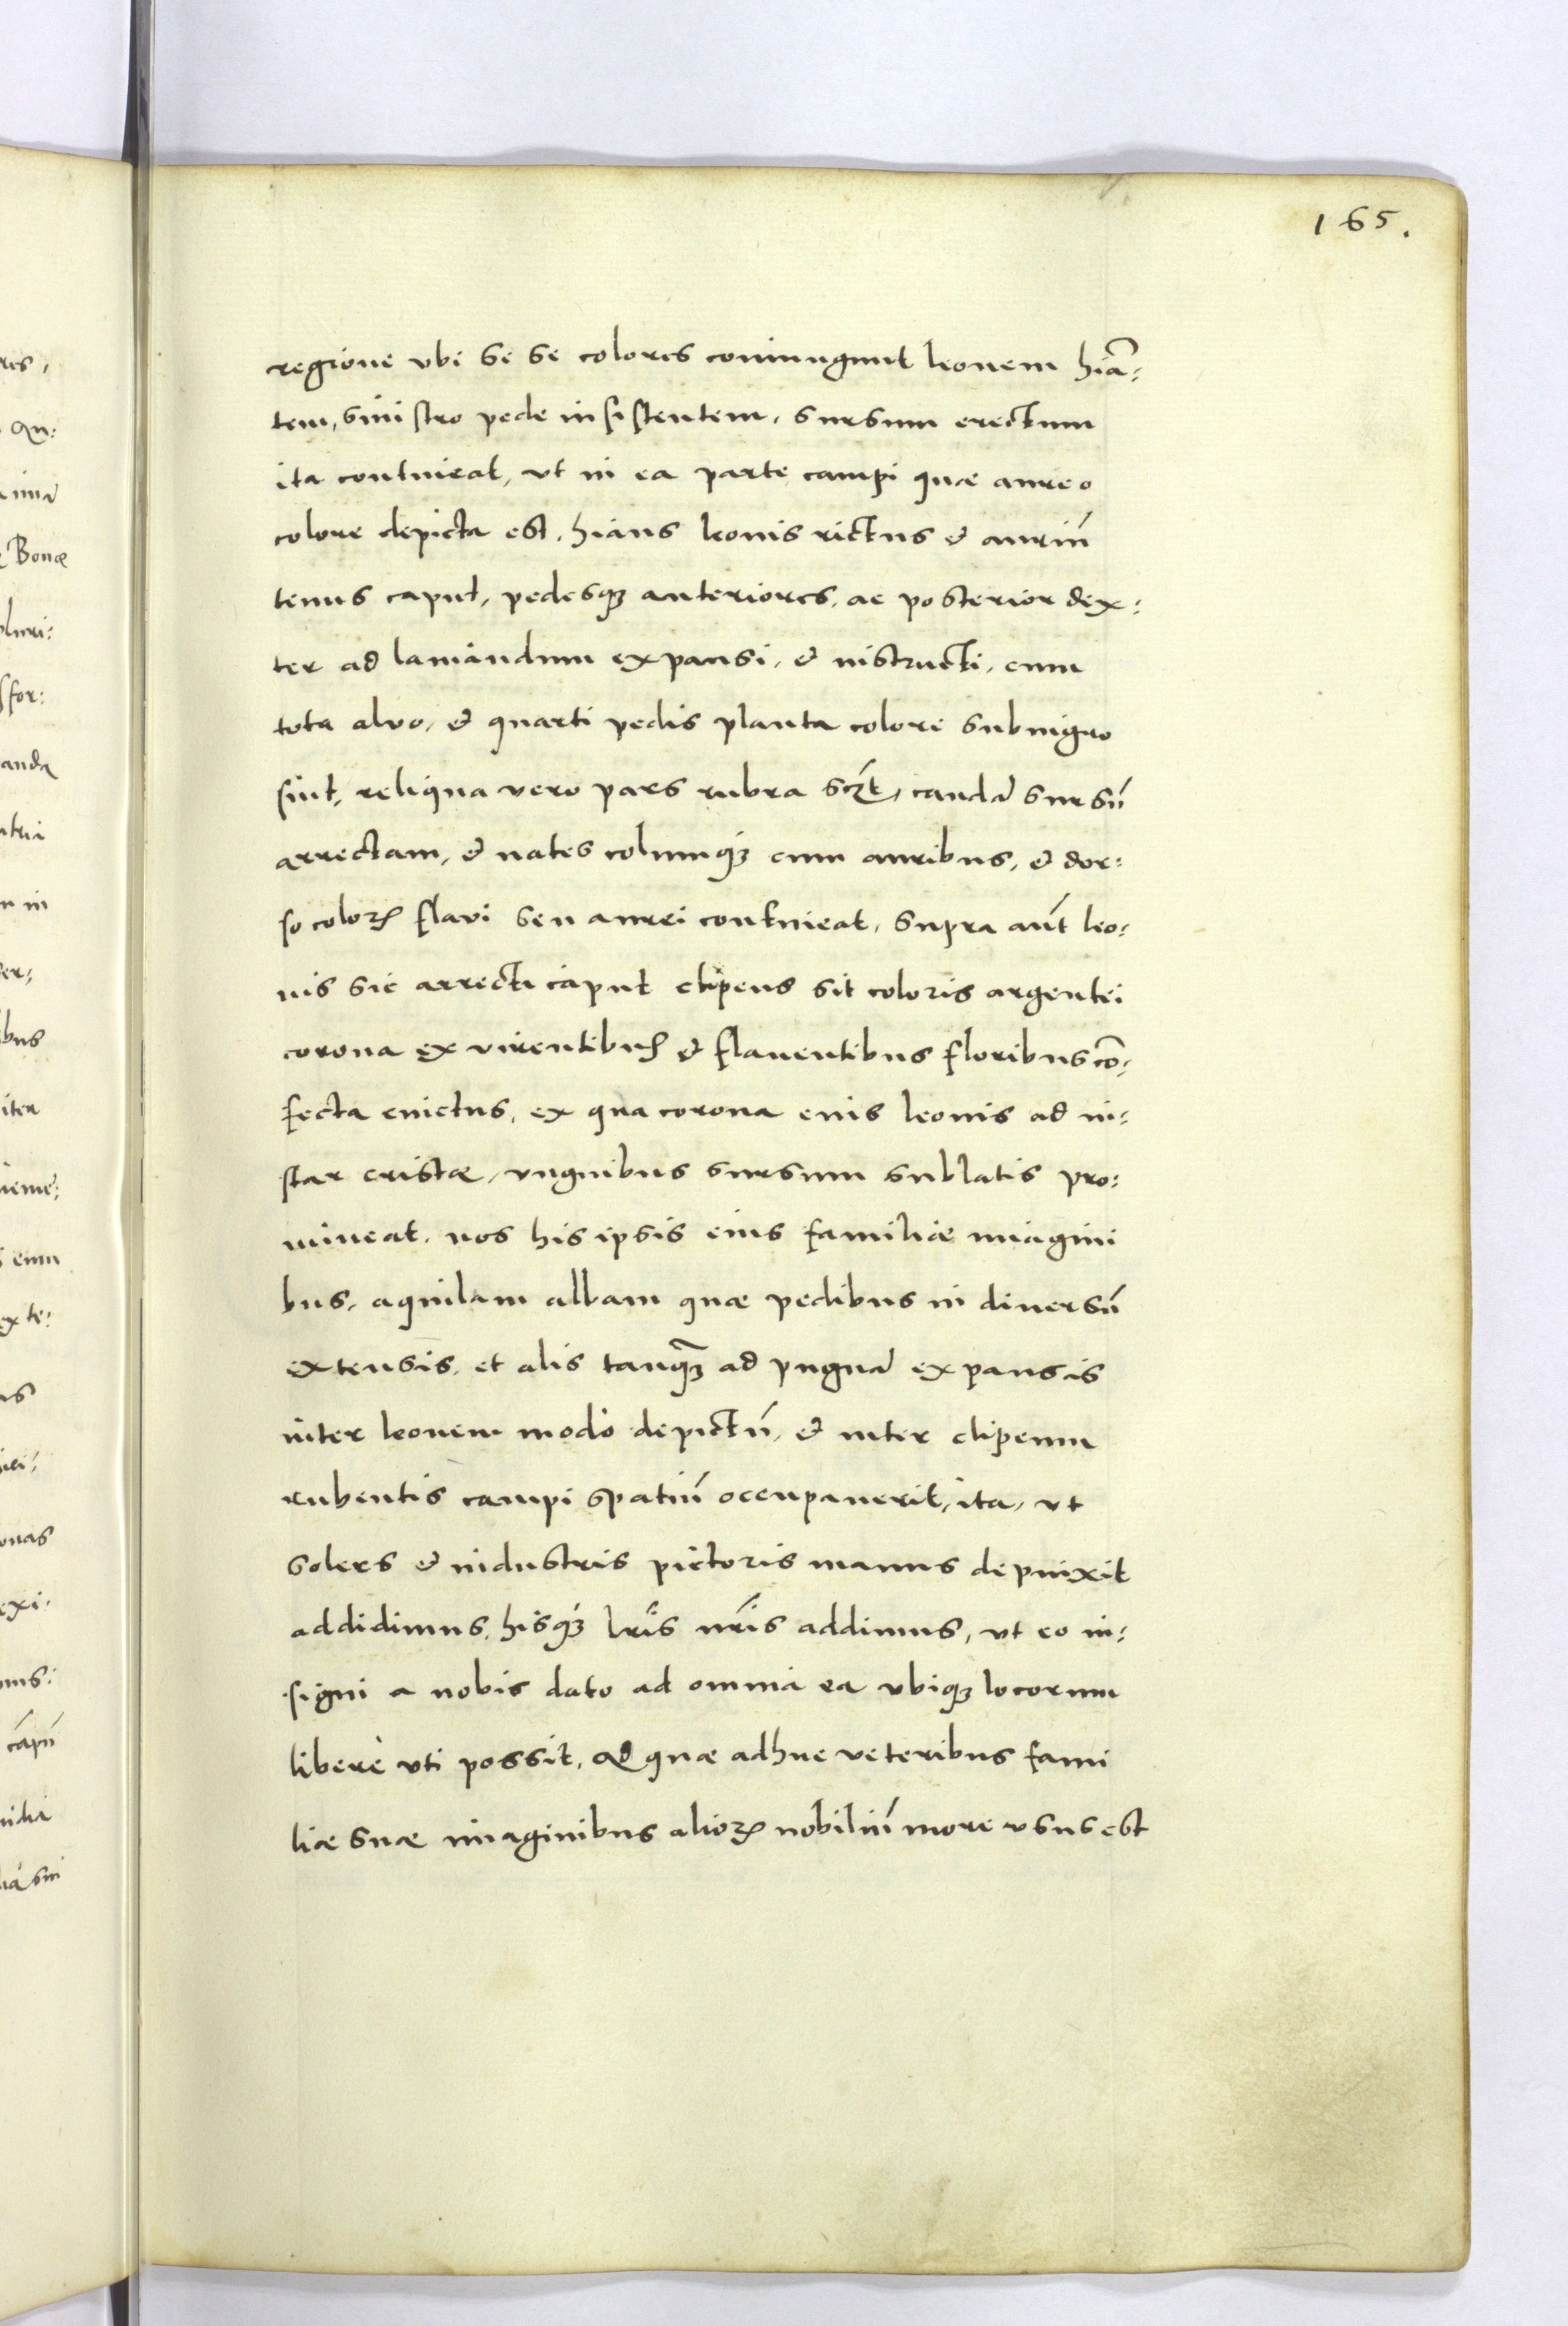 165.
regione vbi se se colores coniungunt leonem hiā:
tem, sinistro pede insistentem, sursum erectum
ita contineat, vt in ea parte campi quæ aureo
colore depicta est, hians leonis rictus & auriū
tenus caput, pedesq₃ anteriores, ac posterior dex:
ter ad lamandum expansi, & instructi, cum
tota alvo, & quarti pedis planta colore subnigro
sint, reliqua vero pars rubra scꝫt, caudā sursū
arrectam, & nates columq₃ cum auribus, & dor:
so coloꝝ flavi seu aurei contineat, supra aūt leo:
nis sic arrecti caput clipeus sit coloris argentei
corona ex virentibus & flauentibus floribus cō:
fecta cinctus, ex qua corona cuis leonis ad in:
star cristæ, vnguibus sursum sublatis pro:
mineat. nos his ipsis eius familiæ imagini
bus, aquilam albam quæ pedibus in diuersū
extensis, et alis tanq̄₃ ad pugnā expansis
inter leonem modo depictū, & inter clipeum
rubentis campi spatiū occupauerit, ita, vt
solers & industris pictoris manus depinxit
addidimus, hisq₃ lr̄is nr̄is addimus, vt eo in:
signi a nobis dato ad omnia ea vbiq₃ locorum
libere vti possit, ad quæ adhuc veteribus fami
liæ suæ imaginibus alioꝝ nobiliū more vsus est
res,
qu:
Bonæ
pluri:
sfor:
anda
n in
fer:
ibus
iter
ex te:
us
onas
exi: